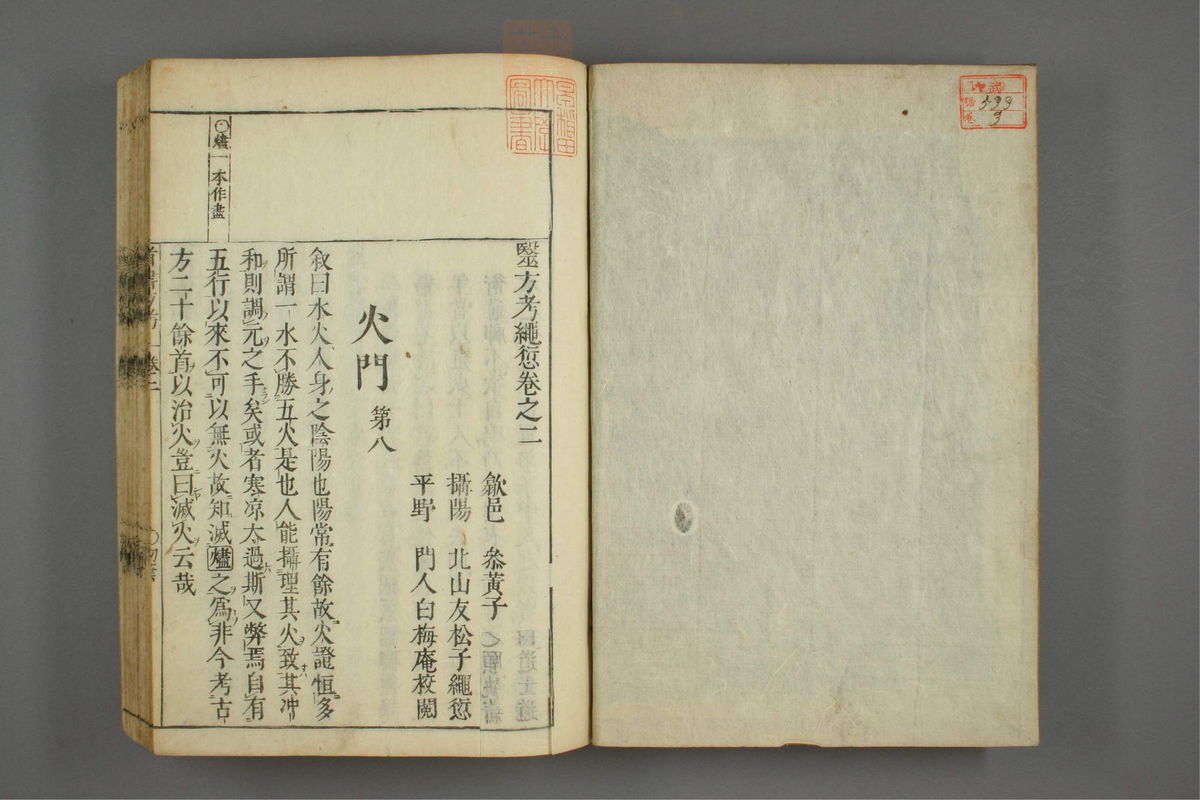 599
3
醫方考繩愆卷之二
歙邑 參黃子
攝陽 北山友松子繩愆
平野 門人白梅庵校閱
火門 第八
敘曰水火人身之陰陽也陽常有餘故火證恒多
所謂一水不勝五火是也人能攝理其火致其冲
和則調元之手矣或者寒凉太過斯又弊焉自有
五行以來不可以無火故知滅爐之爲非今考古
方二十餘首以治火豈曰滅火云哉
一本作盡
卷二